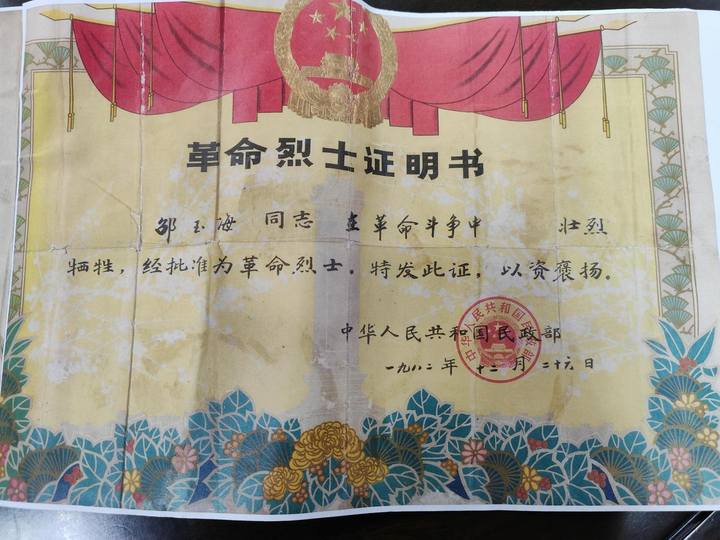 革命烈士证明书
邵玉海 同志 在革命斗争中 壮烈
牺牲，经批准为革命烈士。特发此证，以资褒扬。
中华人民共和国民政部
一九八二年 十二月 二十六日
中华人民共和国民政部